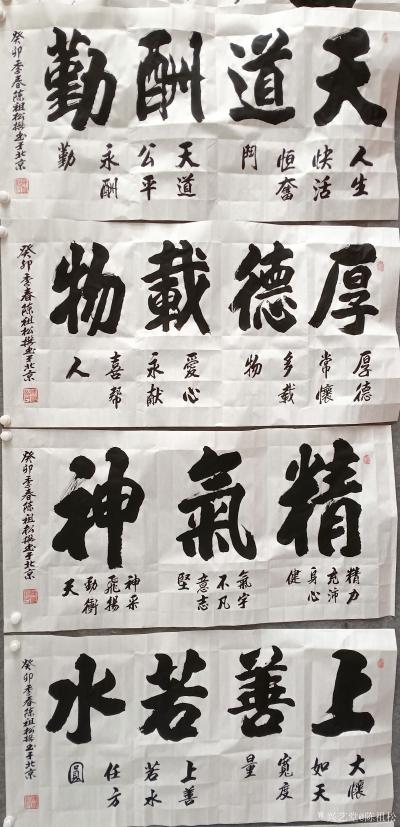 天道酬勤
人生
快活
恒奮
鬥
天道
公平
永酬
勤
癸卯季春陈祖松撰书于北京
厚德載物
厚德
常懷
多載
物
愛心
永献
喜帮
人
癸卯季春陈祖松撰书于北京
精氣神
精力
充沛
身心
健
氣宇
不凡
意志
堅
神采
飛揚
勁衝
天
癸卯季春陈祖松撰书于北京
上善若水
大懷
如天
寬度
量
上善
若水
任方
圓
癸卯季春陈祖松撰书于北京
@陈祖松